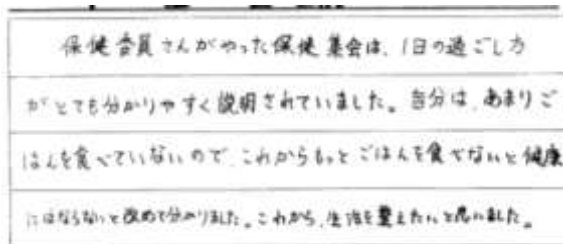 保健委員さんがやった保健集会は、1日の過ごし方
がとても分かりやすく説明されていました。自分は、あまりご
はんを食べていないので、これからもっとごはんを食べないと健康
にはならないと改めて分かりました。これから、生活を整えたいと思いました。